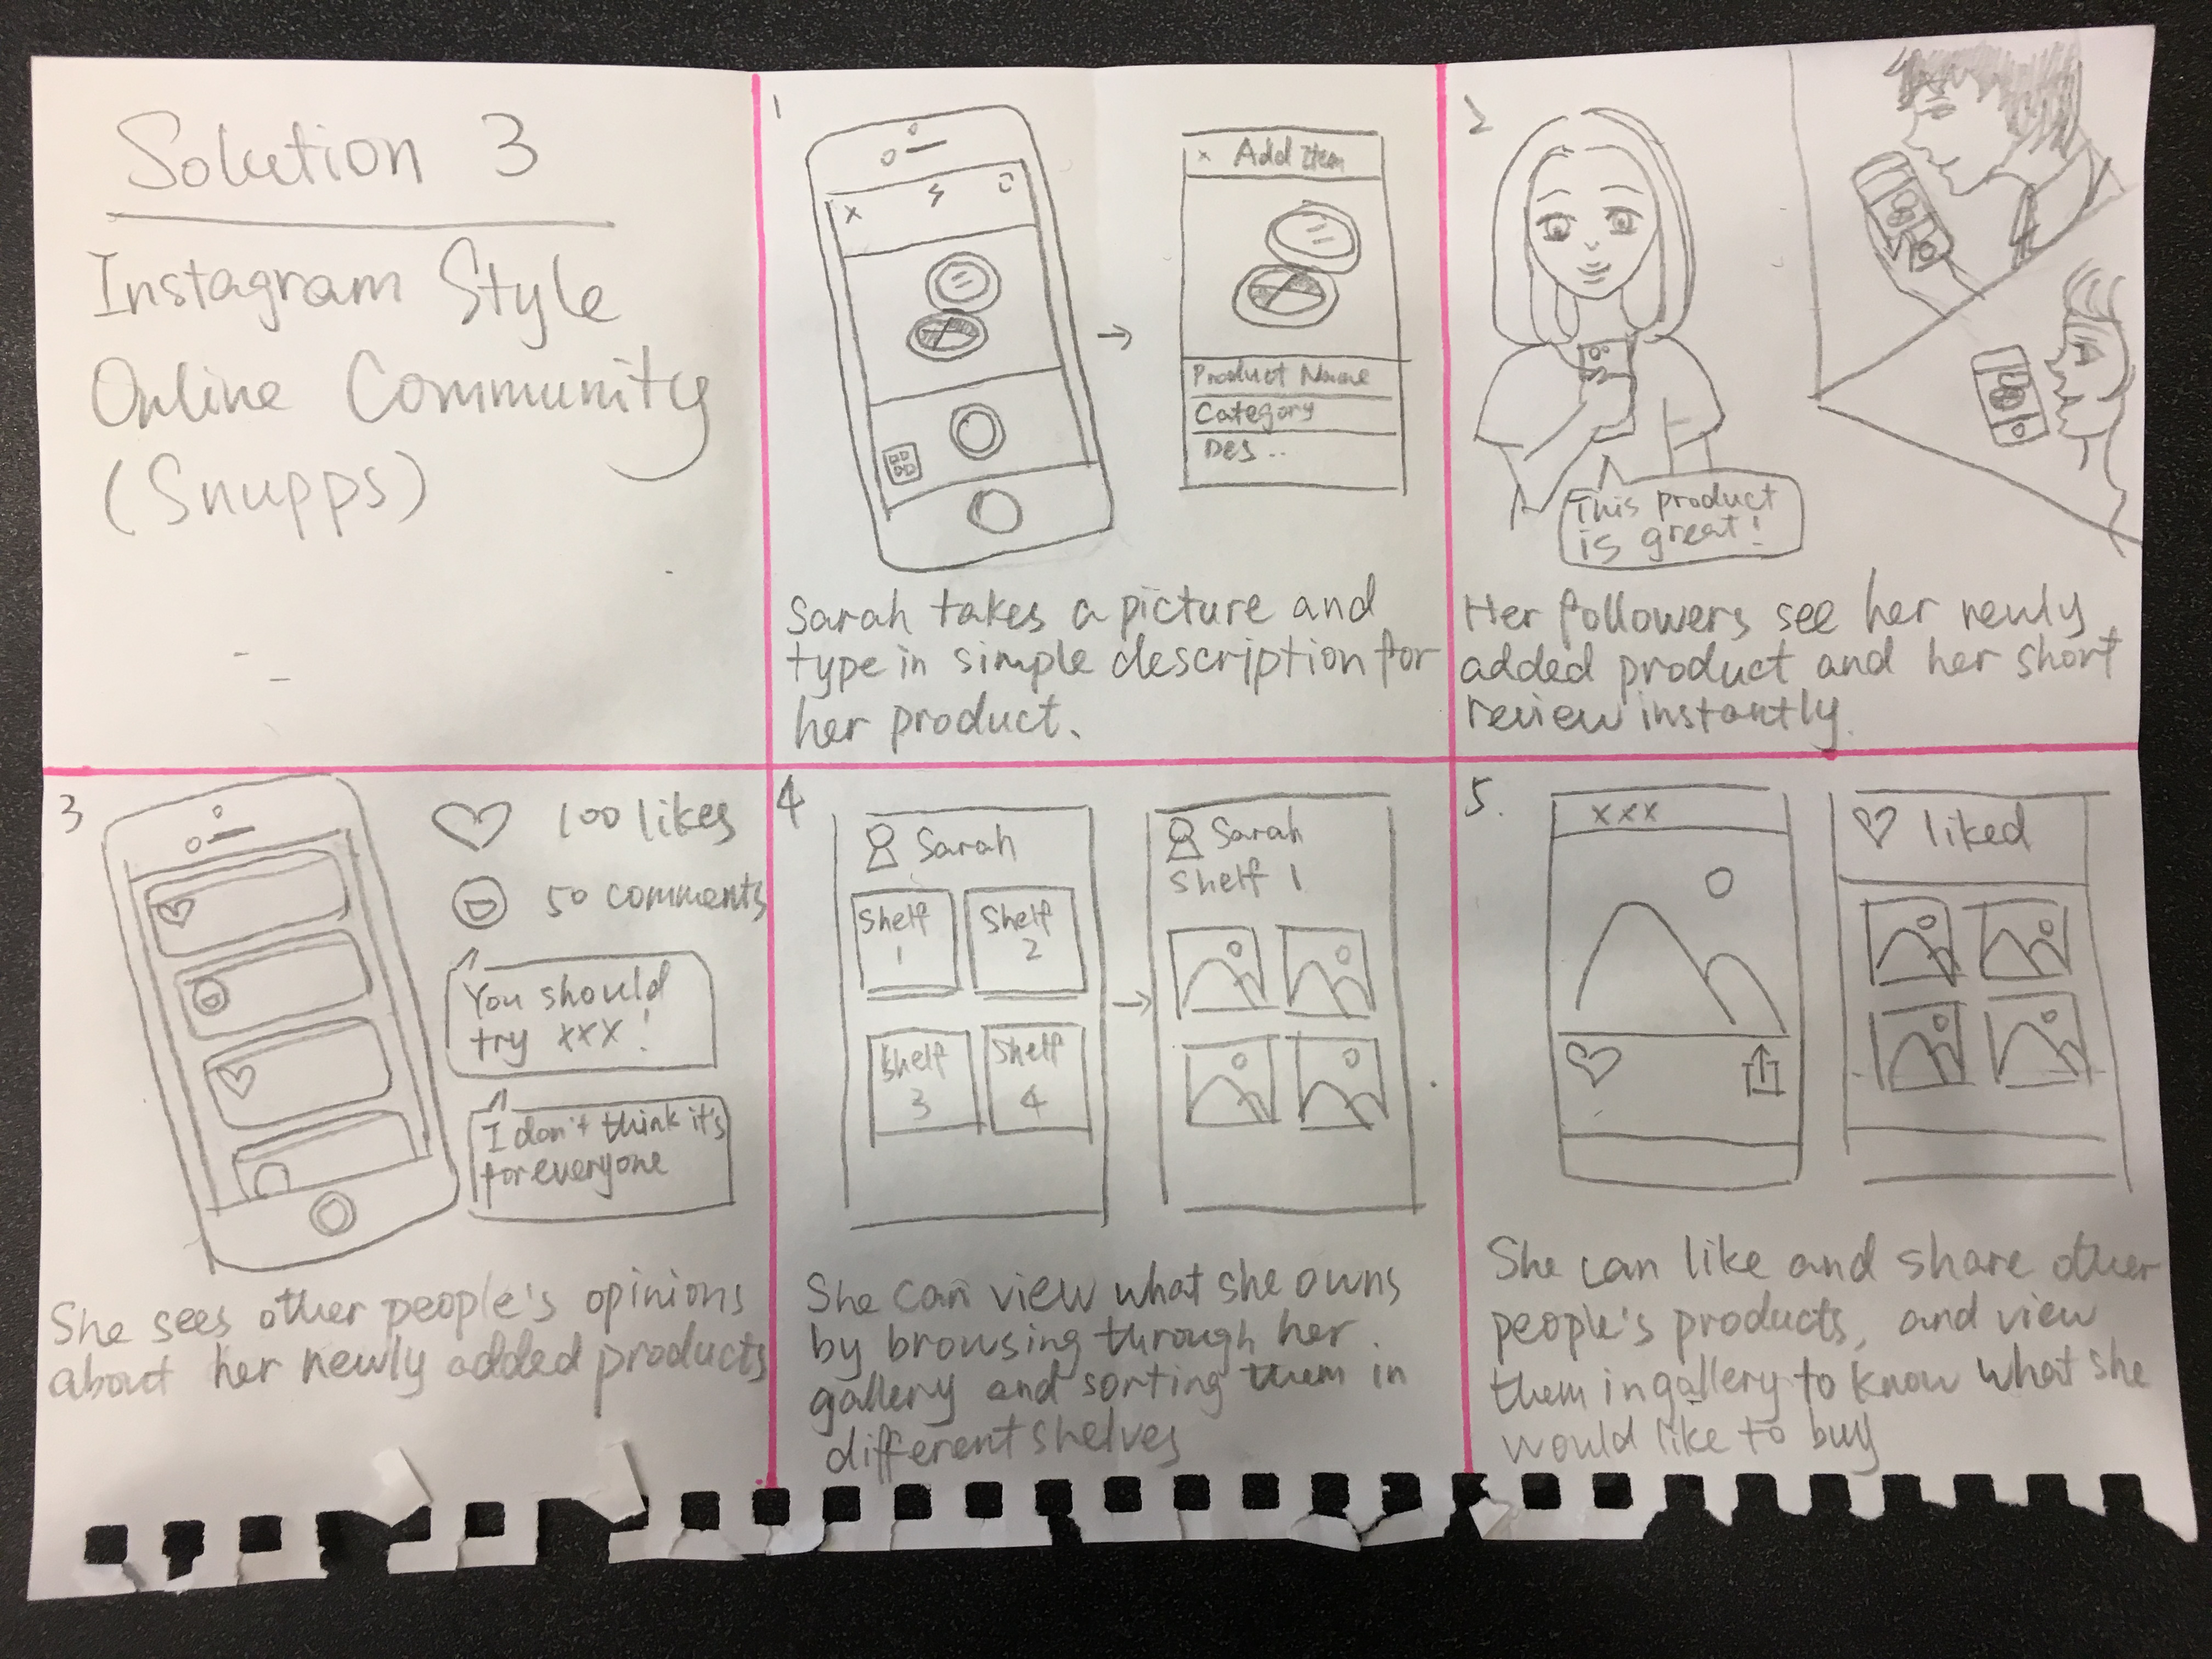 Solution 3
Instagram Style
Online Community
(Snupps)
1
x
x Add Item
Product Name
Category
Des..
Sarah takes a picture and
type in simple description for
her product.
2
This product
is great!
Her followers see her newly
added product and her short
review instantly.
3
100 likes
50 comments
You should
try xxx!
I don't think it's
for everyone
She sees other people's opinions
about her newly added products
4
Sarah
Shelf
1
Shelf
2
Shelf
3
Shelf
4
Sarah
Shelf 1
She can view what she owns
by browsing through her
gallery and sorting them in
different shelves
5.
xxx
liked
She can like and share other
people's products, and view
them in gallery to know what she
would like to buy